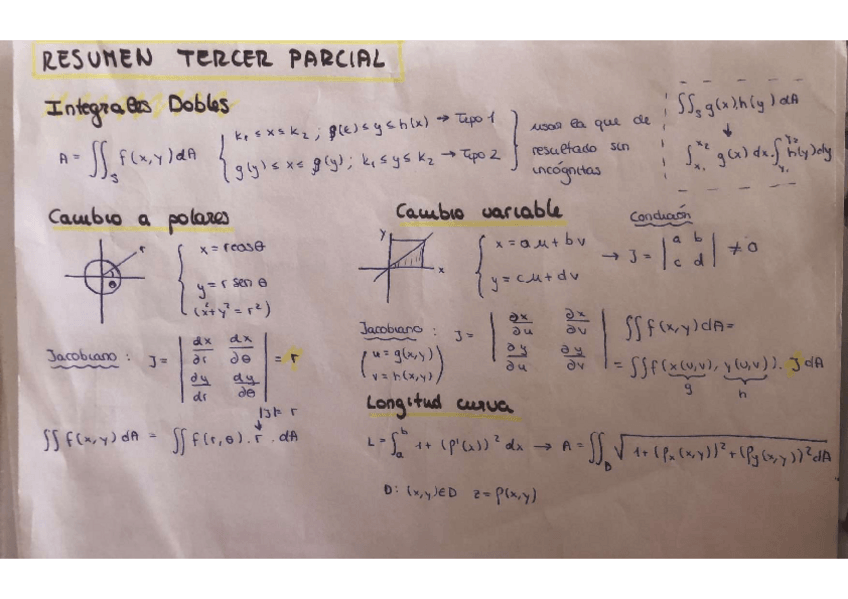 RESUMEN TERCER PARCIAL
Integrales Dobles
A = ∬_S f(x,y)dA { k₁ ≤ x ≤ k₂ ; g(x) ≤ y ≤ h(x) → Tipo 1
g(y) ≤ x ≤ g(y) ; k₁ ≤ y ≤ k₂ → Tipo 2 }
usar la que de
resultado sin
incógnitas
∬_S g(x)h(y)dA
↓
∫_{x₁}^{x₂} g(x)dx · ∫_{y₁}^{y₂} h(y)dy
Cambio a polares
r
θ
{ x = r cosθ
y = r sen θ
(x²+y² = r²)
Jacobiano : J = | dx/∂r dx/∂θ |
| dy/dr dy/∂θ | = r
|J| = r
↓
∬ f(x,y) dA = ∬ f(r,θ) · r · dA
Cambio variable
y
x
{ x = au + bv
y = cu + dv
Condición
→ J = | a b |
| c d | ≠ 0
Jacobiano : J = | ∂x/∂u ∂x/∂v |
| ∂y/∂u ∂y/∂v |
( u = g(x,y)
v = h(x,y) )
∬ f(x,y)dA =
= ∬ f(x(u,v), y(u,v)) · J dA
g h
Longitud curva
L = ∫_a^b 1 + (f'(x))² dx → A = ∬_D √(1 + (fx(x,y))² + (fy(x,y))²) dA
D : (x,y)∈D z = f(x,y)